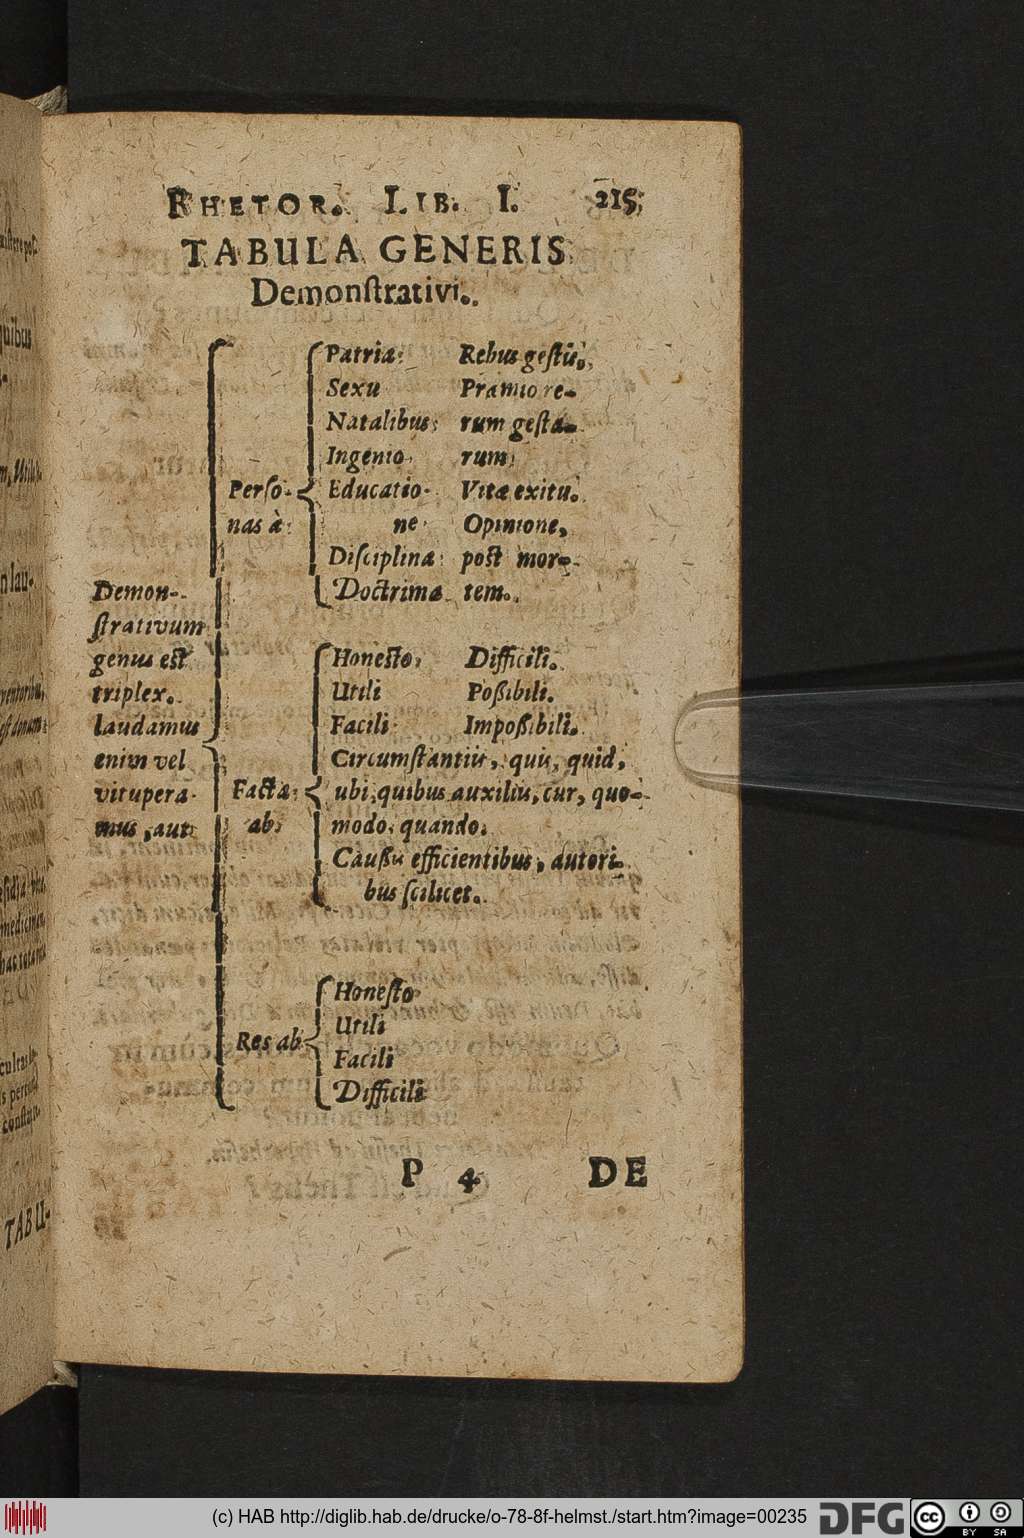 RHETOR. LIB. I. 215
TABULA GENERIS
Demonſtrativi.
Demon-
ſtrativum
genus eſt
triplex.
laudamus
enim vel
vitupera-
mus, aut
Perſo-
nas à
Patria
Sexu
Natalibus
Ingenio
Educatio-
ne
Diſciplina
Doctrina
Rebus geſtis,
Præmio re-
rum geſta-
rum
Vitæ exitu.
Opinione,
poſt mor-
tem.
Facta
ab
Honeſto, Difficili.
Utili Poßibili.
Facili Impoßibili.
Circumſtantiis, quis, quid,
ubi, quibus auxiliis, cur, quo-
modo, quando.
Caußis efficientibus, autori-
bus ſcilicet.
Res ab
Honeſto
Utili
Facili
Difficili
P 4 DE
TABU-
(c) HAB http://diglib.hab.de/drucke/o-78-8f-helmst./start.htm?image=00235
DFG
cc BY SA